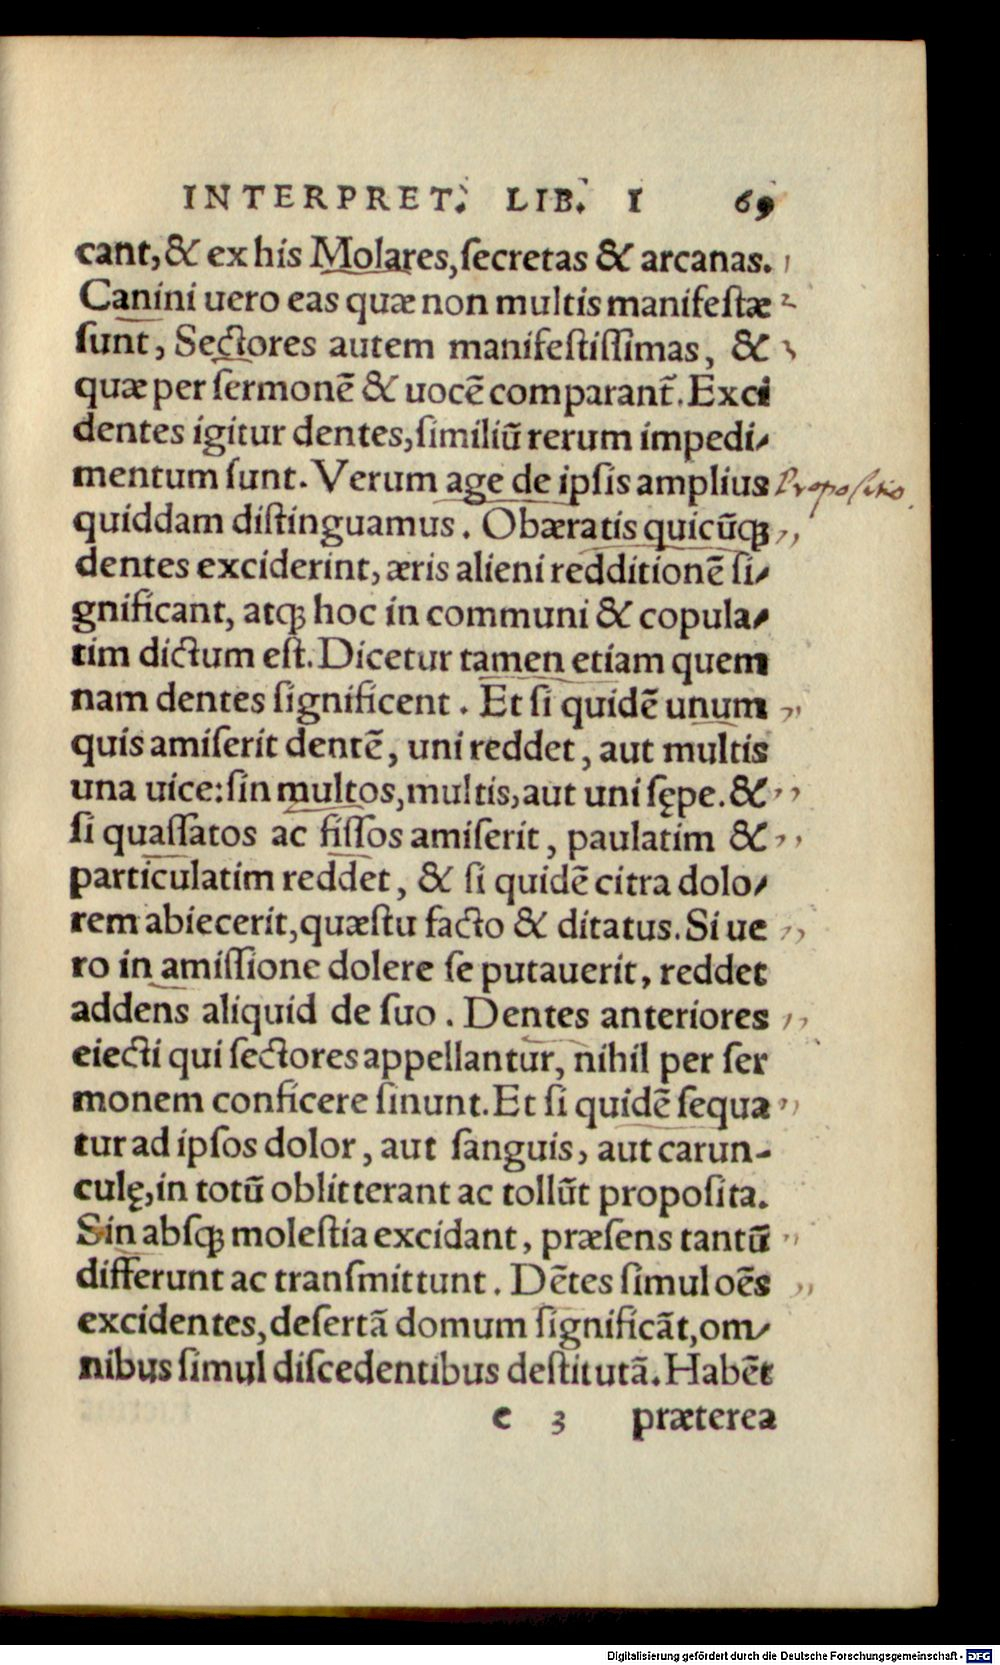 INTERPRET. LIB. I 69
cant, & ex his Molares, ſecretas & arcanas. 1
Canini uero eas quæ non multis manifeſtæ 2
ſunt, Sectores autem manifeſtiſſimas, & 3
quæ per ſermonē & uocē comparant̃. Exci
dentes igitur dentes, ſimiliũ rerum impedi-
mentum ſunt. Verum age de ipſis amplius Propoſitio.
quiddam diſtinguamus. Obæratis quicũqꝫ ,,
dentes exciderint, æris alieni redditionē ſi-
gnificant, atqꝫ hoc in communi & copula-
tim dictum eſt. Dicetur tamen etiam quem
nam dentes ſignificent. Et ſi quidē unum ,,
quis amiſerit dentē, uni reddet, aut multis
una uice: ſin multos, multis, aut uni ſępe. & ,,
ſi quaſſatos ac fiſſos amiſerit, paulatim & ,,
particulatim reddet, & ſi quidē citra dolo-
rem abiecerit, quæſtu facto & ditatus. Si ue ,,
ro in amiſſione dolere ſe putauerit, reddet
addens aliquid de ſuo. Dentes anteriores ,,
eiecti qui ſectores appellantur, nihil per ſer
monem conficere ſinunt. Et ſi quidē ſequa ,,
tur ad ipſos dolor, aut ſanguis, aut carun-
culę, in totũ oblitterant ac tollũt propoſita.
Sin abſqꝫ moleſtia excidant, præſens tantũ ,,
differunt ac tranſmittunt. Dētes ſimul oēs ,,
excidentes, deſertã domum ſignificãt, om-
nibus ſimul diſcedentibus deſtitutã. Habēt
e 3 præterea
Digitalisierung gefördert durch die Deutsche Forschungsgemeinschaft - DFG